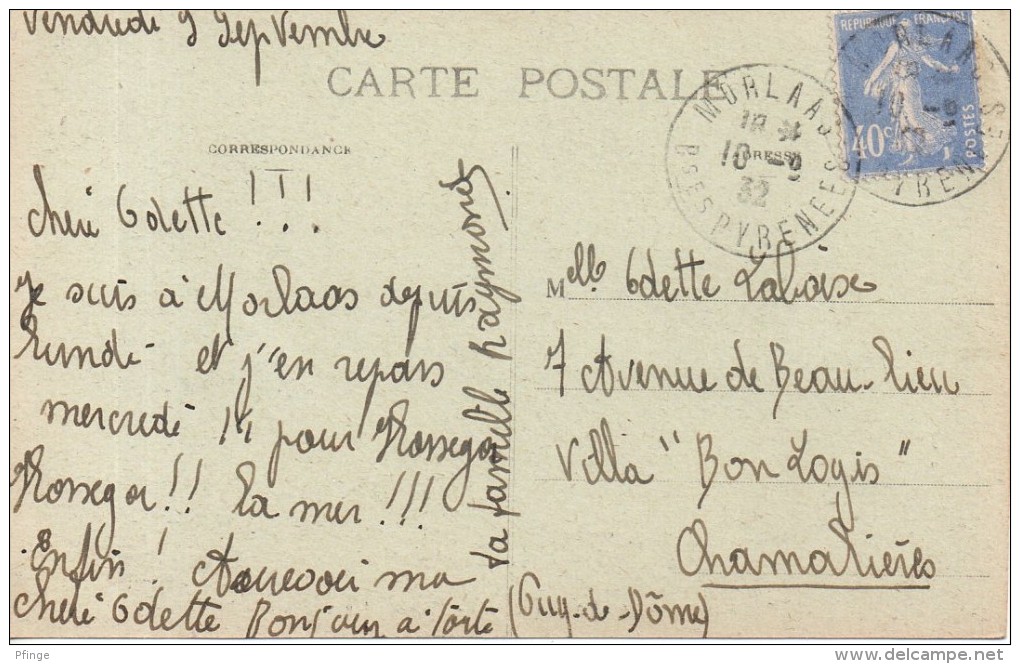 Vendredi 9 Septembre
CARTE POSTALE
CORRESPONDANCE
ADRESSE
REPUBLIQUE FRANÇAISE
40c
POSTES
MORLAAS
18 *
10 -9
32
BSES PYRENEES
Cheri Odette !!!
Je suis à Morlaas depuis
lundi et j'en repars
mercredi !! pour Hossegor
Hossegor !! la mer !!!
Enfin ! Aurevoir ma
cheri Odette Bonjour à toute
ta famille Raymond
Melle Odette Laboise
7 Avenue de Beau-lieu
Villa "Bon Logis"
Chamalières
(Puy-de-Dôme)
Pfinge
delcampe.net